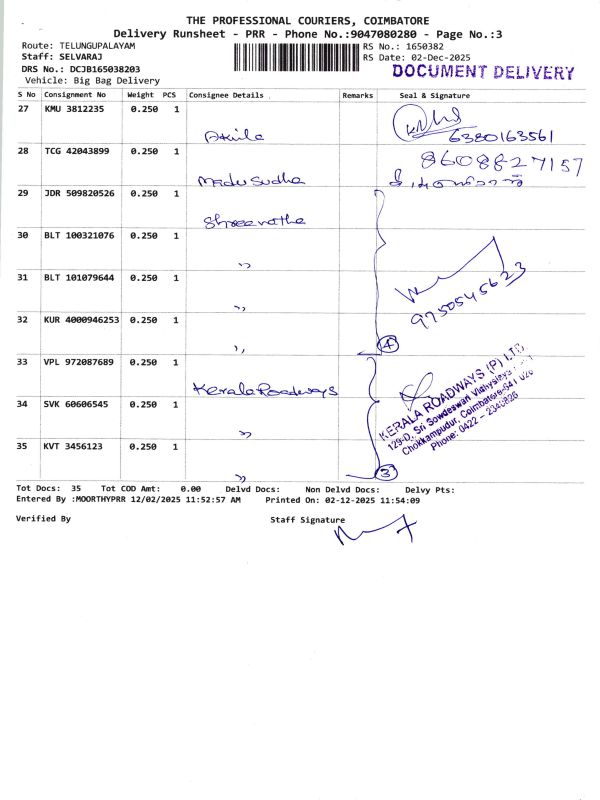 THE PROFESSIONAL COURIERS, COIMBATORE
Delivery Runsheet - PRR - Phone No.:9047080280 - Page No.:3
Route: TELUNGUPALAYAM RS No.: 1650382
Staff: SELVARAJ RS Date: 02-Dec-2025
DRS No.: DCJB165038203 DOCUMENT DELIVERY
Vehicle: Big Bag Delivery
S No Consignment No Weight PCS Consignee Details Remarks Seal & Signature
27 KMU 3812235 0.250 1
Akila 6380163561
28 TCG 42043899 0.250 1 8608827157
Madu Sudha
29 JDR 509820526 0.250 1
Shreevatha
30 BLT 100321076 0.250 1
"
31 BLT 101079644 0.250 1
" 9750545623
32 KUR 4000946253 0.250 1
" 4
33 VPL 972087689 0.250 1
Kerala Roadways
KERALA ROADWAYS (P) LTD
129-D, Sri Sowdeswari Vidhyalaya
Chokkampudur, Coimbatore-641 026
Phone: 0422 - 2346826
34 SVK 60606545 0.250 1
"
35 KVT 3456123 0.250 1
" 3
Tot Docs: 35 Tot COD Amt: 0.00 Delvd Docs: Non Delvd Docs: Delvy Pts:
Entered By :MOORTHYPRR 12/02/2025 11:52:57 AM Printed On: 02-12-2025 11:54:09
Verified By Staff Signature